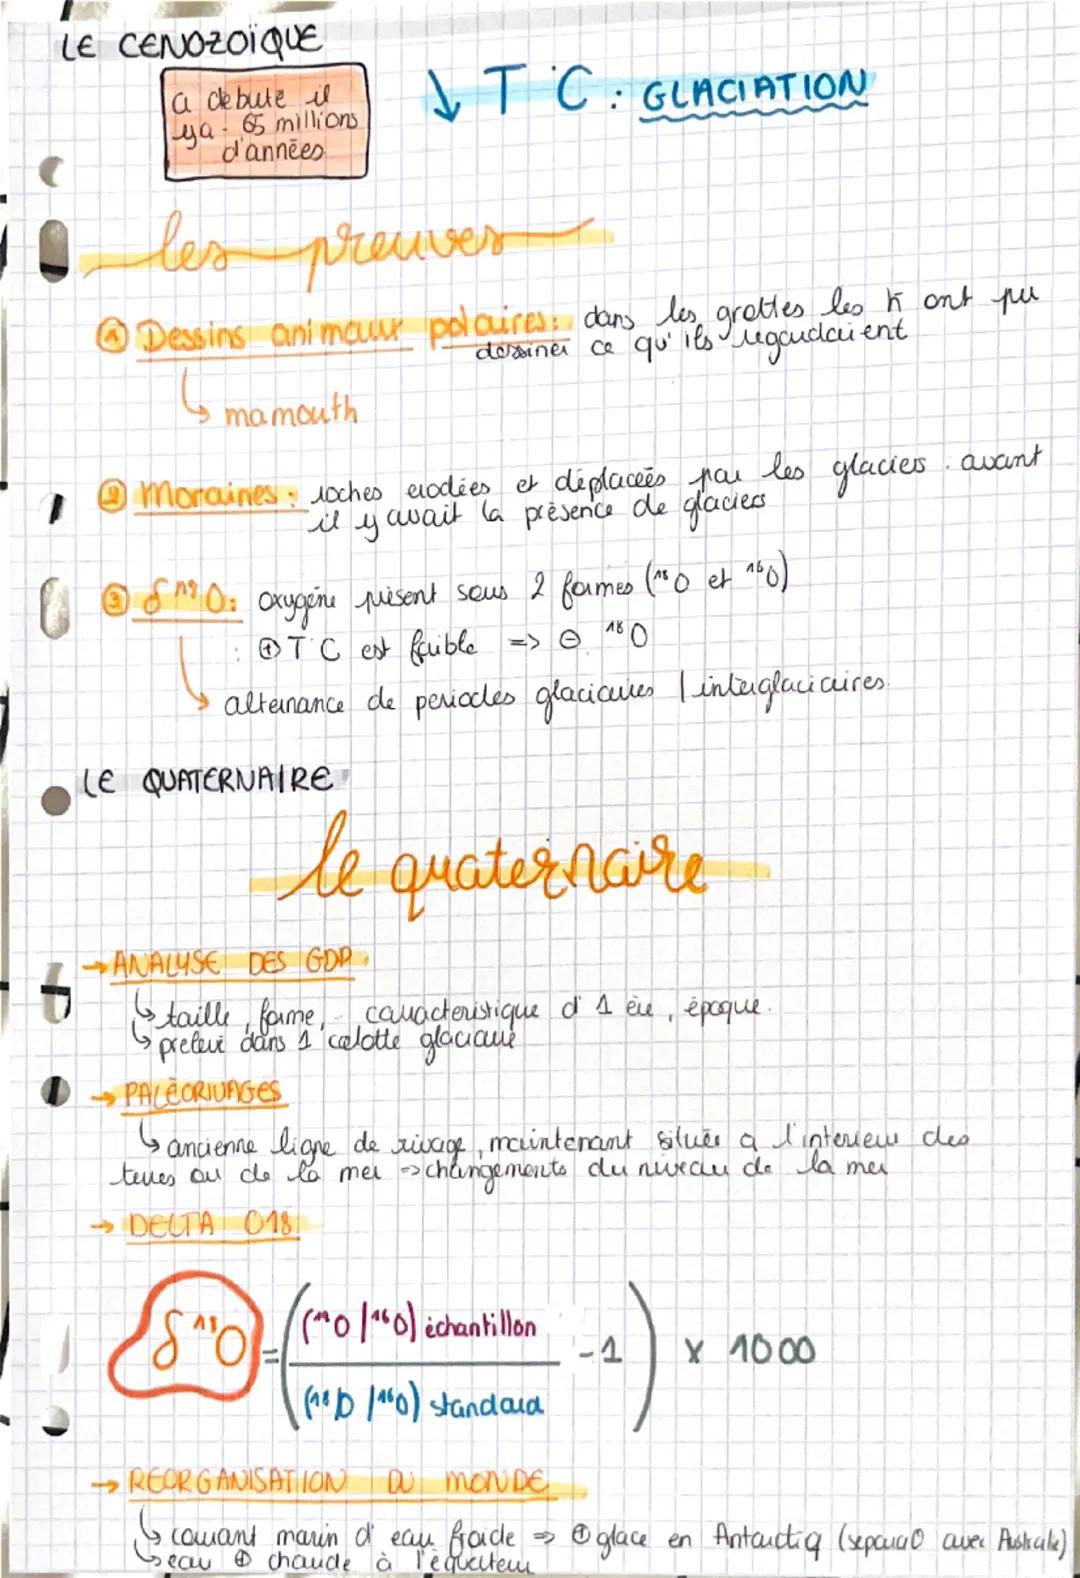 LE CENOZOÏQUE
a debuté il
ya - 65 millions
d'années
↓ T°C : GLACIATION
les preuves
① Dessins animaux polaires: dans les grottes les ont pu
dessiner ce qu'ils regardaient
↳ mamouth
② Moraines : roches erodées et déplaceés par les glaciers. avant
il y avait la présence de glaciers
③ δ¹⁸O: oxygéne présent sous 2 formes (¹⁸O et ¹⁶O)
⊕ T°C est faible => ⊖ ¹⁸O
↳ alternance de periodes glaciaires / interglaciaires.
LE QUATERNAIRE
le quaternaire
→ ANALYSE DES GDP
↳ taille, forme, caracteristique d'1 ère, époque.
↳ prelevé dans 1 calotte glaciaire
→ PALÉORIVAGES
↳ ancienne ligne de rivage, maintenant située a l'interieur des
terres ou de la mer => changements du niveau de la mer
→ DELTA O18
δ¹⁸O = ( (¹⁸O / ¹⁶O) échantillon
- 1 ) x 1000
(¹⁸O / ¹⁶O) standard
→ REORGANISATION DU MONDE
↳ courant marin d'eau froide => ⊕ glace en Antarctiq (separa° avec Australie)
↳ eau ⊕ chaude à l'équateur